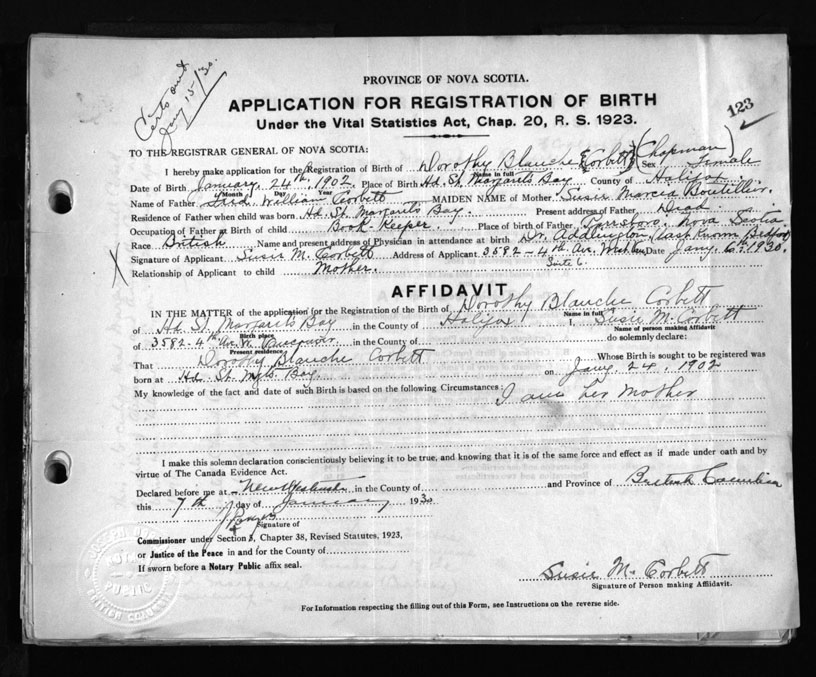 Certs out
Jany 15/30.
123
PROVINCE OF NOVA SCOTIA.
APPLICATION FOR REGISTRATION OF BIRTH
Under the Vital Statistics Act, Chap. 20, R. S. 1923.
TO THE REGISTRAR GENERAL OF NOVA SCOTIA:
I hereby make application for the Registration of Birth of Dorothy Blanche (Corbett) (Chapman) Sex Female
Name in full
Date of Birth January 24th, 1902 Place of Birth Hd. St. Margarets Bay County of Halifax
Month Day Year
Name of Father Fred William Corbett MAIDEN NAME of Mother Susie Marcia Boutillier.
Residence of Father when child was born Hd. St. Margarets Bay. Present address of Father Dead.
Occupation of Father at Birth of child Book-Keeper. Place of birth of Father Parrsboro. Nova Scotia
Race British Name and present address of Physician in attendance at birth Dr. Addington (last known Bedford)
Signature of Applicant Susie M. Corbett Address of Applicant 3592 - 4th Av. West Van Date Jany. 6th 1930.
Suite 6.
Relationship of Applicant to child Mother.
X
AFFIDAVIT
IN THE MATTER of the application for the Registration of the Birth of Dorothy Blanche Corbett
Name in full
of Hd St. Margarets Bay in the County of Halifax I, Susie M. Corbett
Birth place
Name of person making Affidavit
of 3592-4th Av. W. Vancouver in the County of do solemnly declare:
Present residence
That Dorothy Blanche Corbett Whose Birth is sought to be registered was
born at Hd. St. Mgts. Bay. on Jany. 24, 1902
My knowledge of the fact and date of such Birth is based on the following Circumstances: I am her Mother
I make this solemn declaration conscientiously believing it to be true, and knowing that it is of the same force and effect as if made under oath and by
virtue of The Canada Evidence Act.
Declared before me at New Westminster in the County of and Province of British Columbia
this 7th day of January 1930
Signature of
Commissioner under Section 3, Chapter 38, Revised Statutes, 1923,
or Justice of the Peace in and for the County of
If sworn before a Notary Public affix seal.
Susie M. Corbett
Signature of Person making Affidavit.
For Information respecting the filling out of this Form, see Instructions on the reverse side.
PUBLIC
BRITISH COLUMBIA